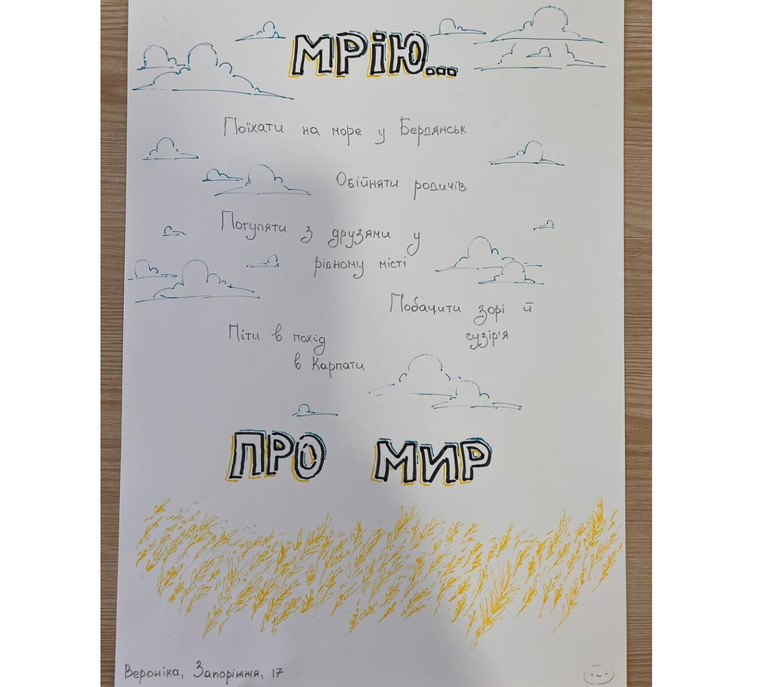 Мрію...
Поїхати на море у Бердянськ
Обійняти родичів
Погуляти з друзями у
рідному місті
Побачити зорі й
сузір'я
Піти в похід
в Карпати
ПРО МИР
Вероніка, Запоріжжя, 17